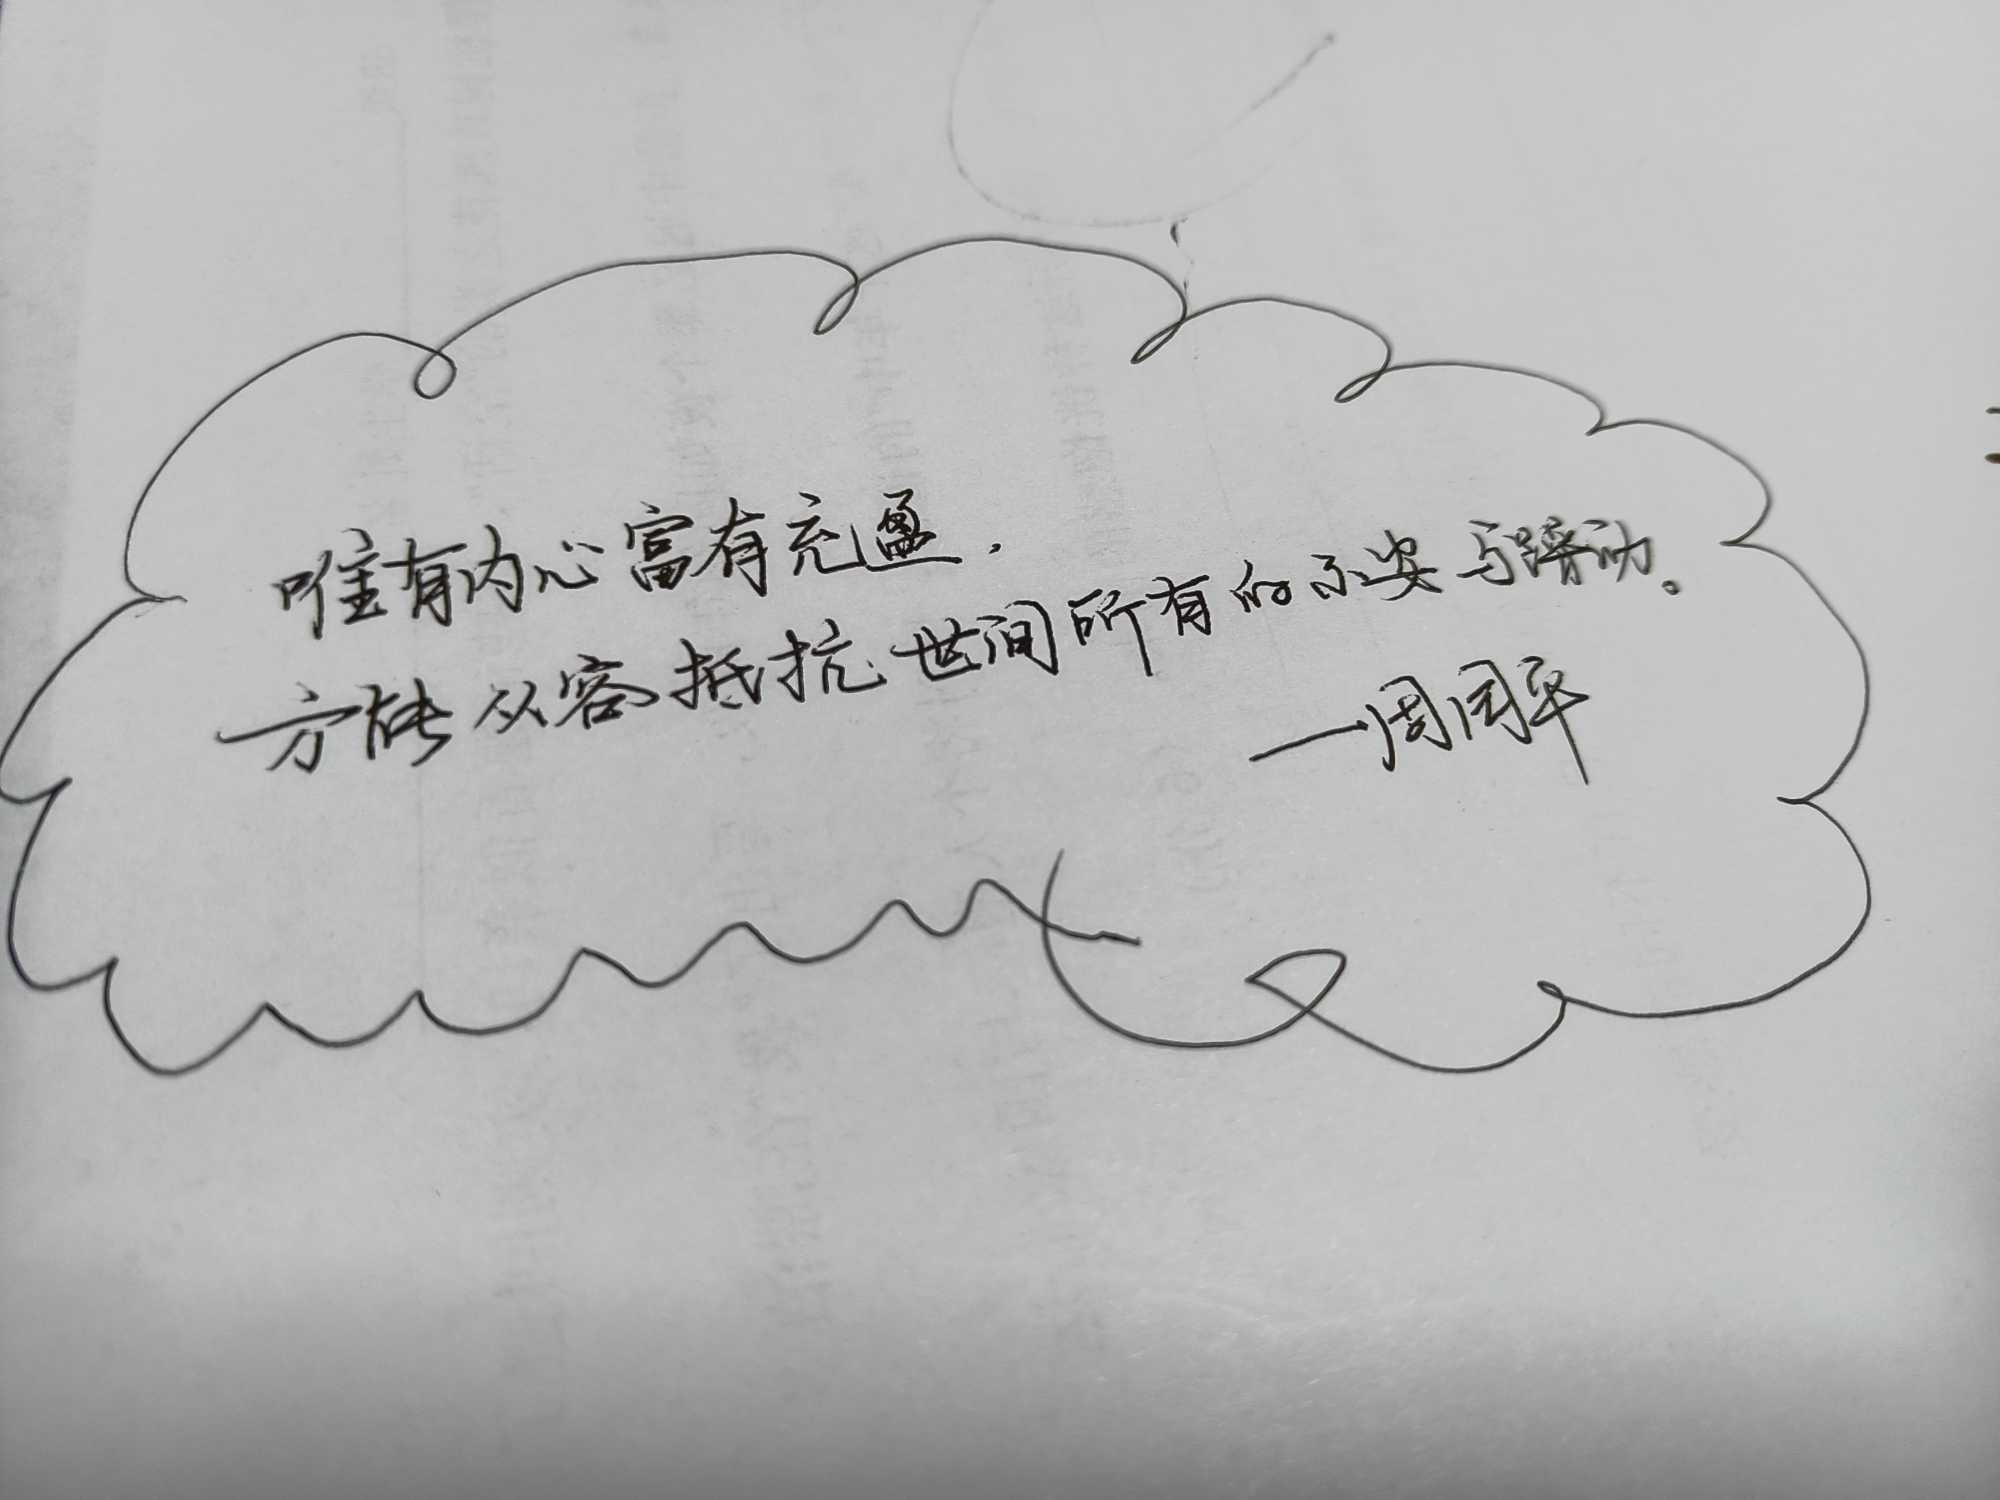 唯有内心富有充盈.
方能从容抵抗世间所有的不安与躁动。
—周国平